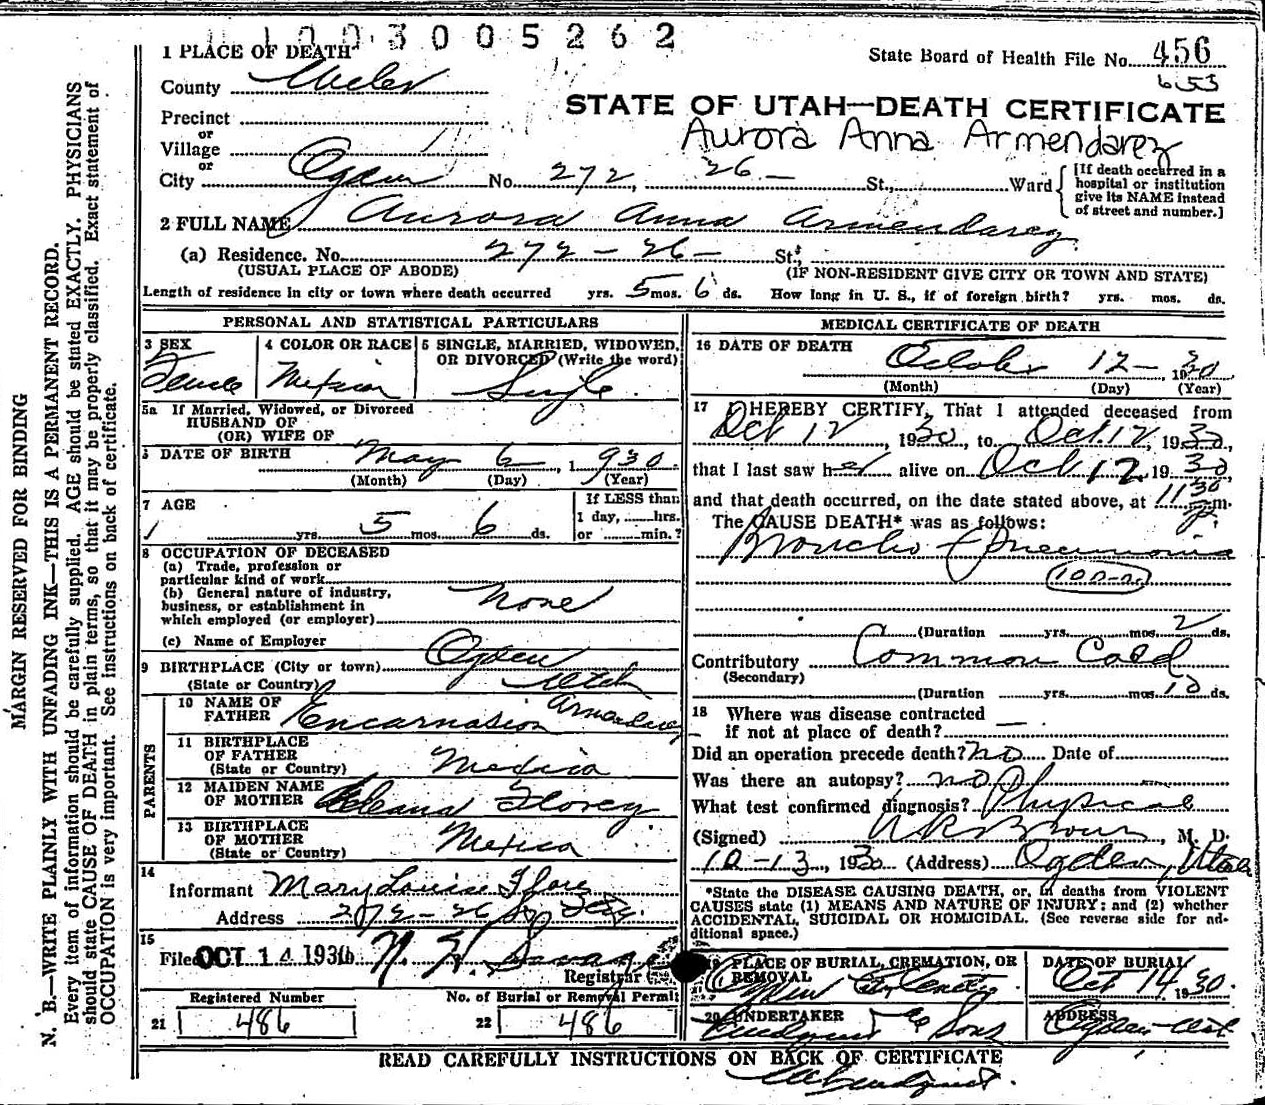 1003005262
1 PLACE OF DEATH
State Board of Health File No. 456
County Weber
653
STATE OF UTAH—DEATH CERTIFICATE
Precinct
Aurora Anna Armendarez
or
Village
or
City Ogden No. 272 26 — St., Ward
[If death occurred in a hospital or institution give its NAME instead of street and number.]
2 FULL NAME Aurora Anna Armendarez
(a) Residence. No. 272 — 26 — St.,
(USUAL PLACE OF ABODE) (IF NON-RESIDENT GIVE CITY OR TOWN AND STATE)
Length of residence in city or town where death occurred yrs. 5 mos. 6 ds. How long in U. S., if of foreign birth? yrs. mos. ds.
PERSONAL AND STATISTICAL PARTICULARS
3 SEX
Female
4 COLOR OR RACE
Mexican
5 SINGLE, MARRIED, WIDOWED, OR DIVORCED (Write the word)
Single
5a If Married, Widowed, or Divorced
HUSBAND OF
(OR) WIFE OF
6 DATE OF BIRTH May 6, 1930
(Month) (Day) (Year)
7 AGE
yrs. 5 mos. 6 ds.
If LESS than
1 day, hrs.
or min.?
8 OCCUPATION OF DECEASED
(a) Trade, profession or
particular kind of work
(b) General nature of industry,
business, or establishment in
which employed (or employer)
None
(c) Name of Employer
9 BIRTHPLACE (City or town) Ogden
(State or Country) Utah
PARENTS
10 NAME OF
FATHER Encarnasion Armendarez
11 BIRTHPLACE
OF FATHER
(State or Country) Mexico
12 MAIDEN NAME
OF MOTHER Florez
13 BIRTHPLACE
OF MOTHER
(State or Country) Mexico
14
Informant Mary Louise Flores
Address 272 — 26
15
Filed OCT 14 1930 N. H. Savage
Registrar
Registered Number
21 486
No. of Burial or Removal Permit
22 486
MEDICAL CERTIFICATE OF DEATH
16 DATE OF DEATH
October 12 — 1930
(Month) (Day) (Year)
17 I HEREBY CERTIFY, That I attended deceased from
Oct 12, 1930, to Oct. 12, 1930,
that I last saw her alive on Oct 12, 1930,
and that death occurred, on the date stated above, at 11 30 p. m.
The CAUSE DEATH* was as follows:
Broncho - Pneumonia
100-a
(Duration yrs. mos. 2 ds.
Contributory Common Cold
(Secondary)
(Duration yrs. mos. 10 ds.
18 Where was disease contracted
if not at place of death?
Did an operation precede death? no Date of
Was there an autopsy? no
What test confirmed diagnosis? Physical
(Signed) Brown, M. D.
10-13, 1930 (Address) Ogden, Utah
*State the DISEASE CAUSING DEATH, or, in deaths from VIOLENT
CAUSES state (1) MEANS AND NATURE OF INJURY; and (2) whether
ACCIDENTAL, SUICIDAL OR HOMICIDAL. (See reverse side for ad-
ditional space.)
19 PLACE OF BURIAL, CREMATION, OR
REMOVAL
Ogden City Cemetery
DATE OF BURIAL
Oct 14 1930
20 UNDERTAKER
Lindquist & Sons
ADDRESS
Ogden Utah
READ CAREFULLY INSTRUCTIONS ON BACK OF CERTIFICATE
Lindquist
MARGIN RESERVED FOR BINDING
N. B.—WRITE PLAINLY WITH UNFADING INK—THIS IS A PERMANENT RECORD.
Every item of information should be carefully supplied. AGE should be stated EXACTLY. PHYSICIANS
should state CAUSE OF DEATH in plain terms, so that it may be properly classified. Exact statement of
OCCUPATION is very important. See instructions on back of certificate.